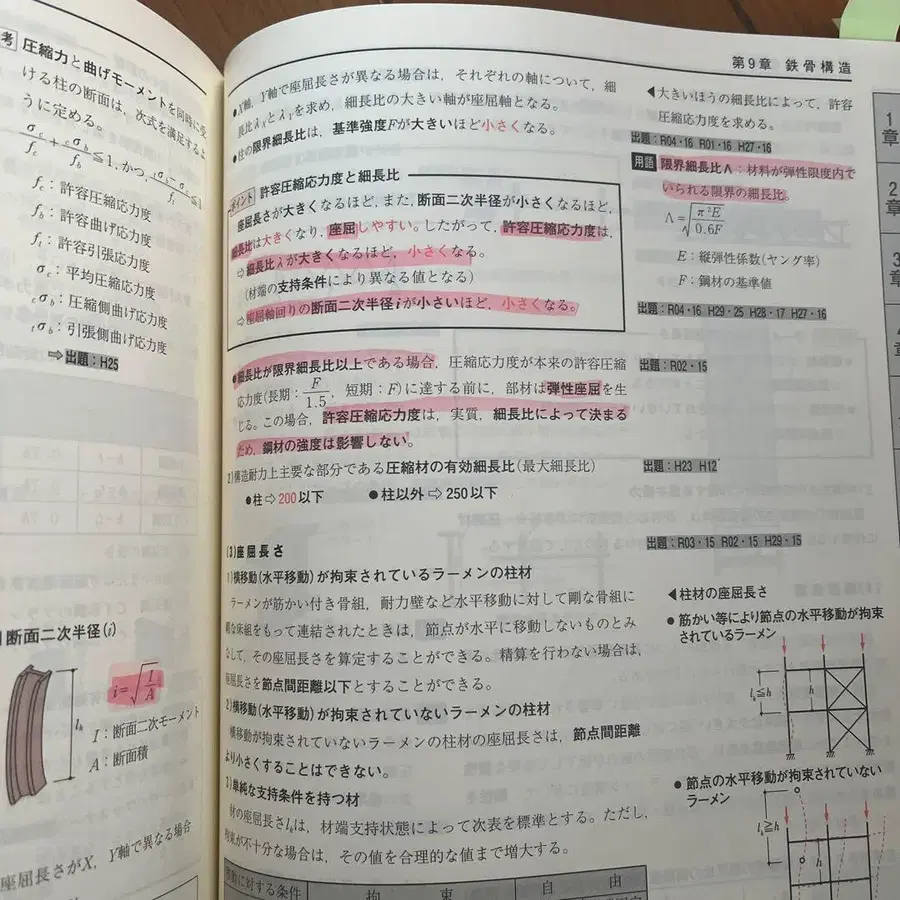 考 圧縮力と曲げモーメントを同時に受
ける柱の断面は、次式を満足するよ
うに定める。
σc/fc + cσb/fb ≦1, かつ, tσb−σc/ft ≦1
fc：許容圧縮応力度
fb：許容曲げ応力度
ft：許容引張応力度
σc：平均圧縮応力度
cσb：圧縮側曲げ応力度
tσb：引張側曲げ応力度
⇨出題：H25
断面二次半径(i)
i=√I/A
lk
I：断面二次モーメント
A：断面積
座屈長さがX, Y軸で異なる場合
第9章 鉄骨構造
●X軸, Y軸で座屈長さが異なる場合は, それぞれの軸について, 細
長比λXとλYを求め, 細長比の大きい軸が座屈軸となる。
●柱の限界細長比は, 基準強度Fが大きいほど小さくなる。
ポイント 許容圧縮応力度と細長比
座屈長さが大きくなるほど, また, 断面二次半径が小さくなるほど,
細長比は大きくなり, 座屈しやすい。したがって, 許容圧縮応力度は,
⇨細長比λが大きくなるほど, 小さくなる。
(材端の支持条件により異なる値となる)
⇨座屈軸回りの断面二次半径iが小さいほど, 小さくなる。
●細長比が限界細長比以上である場合, 圧縮応力度が本来の許容圧縮
応力度(長期：F/1.5, 短期：F)に達する前に, 部材は弾性座屈を生
じる。この場合, 許容圧縮応力度は, 実質, 細長比によって決まる
ため, 鋼材の強度は影響しない。
2)構造耐力上主要な部分である圧縮材の有効細長比(最大細長比)
●柱⇨200以下 ●柱以外⇨250以下
(3)座屈長さ
1)横移動(水平移動)が拘束されているラーメンの柱材
ラーメンが筋かい付き骨組, 耐力壁など水平移動に対して剛な骨組に
剛な床組をもって連結されたときは, 節点が水平に移動しないものとみ
なして, その座屈長さを算定することができる。精算を行わない場合は,
座屈長さを節点間距離以下とすることができる。
2)横移動(水平移動)が拘束されていないラーメンの柱材
横移動が拘束されていないラーメンの柱材の座屈長さは, 節点間距離
より小さくすることはできない。
3)単純な支持条件を持つ材
材の座屈長さlkは, 材端支持状態によって次表を標準とする。ただし,
拘束が不十分な場合は, その値を合理的な値まで増大する。
移動に対する条件 拘束 自由
◀大きいほうの細長比によって, 許容
圧縮応力度を求める。
出題：R04・16 R01・16 H27・16
用語 限界細長比Λ：材料が弾性限度内で
いられる限界の細長比。
Λ=√π²E/0.6F
E：縦弾性係数(ヤング率)
F：鋼材の基準値
出題：R04・16 H29・25 H28・17 H27・16
出題：R02・15
出題：H23 H12
出題：R03・15 R02・15 H29・15
◀柱材の座屈長さ
●筋かい等により節点の水平移動が拘束
されているラーメン
lk≦h
h
●節点の水平移動が拘束されていない
ラーメン
lk≧h
h
1
章
2
章
3
章
章